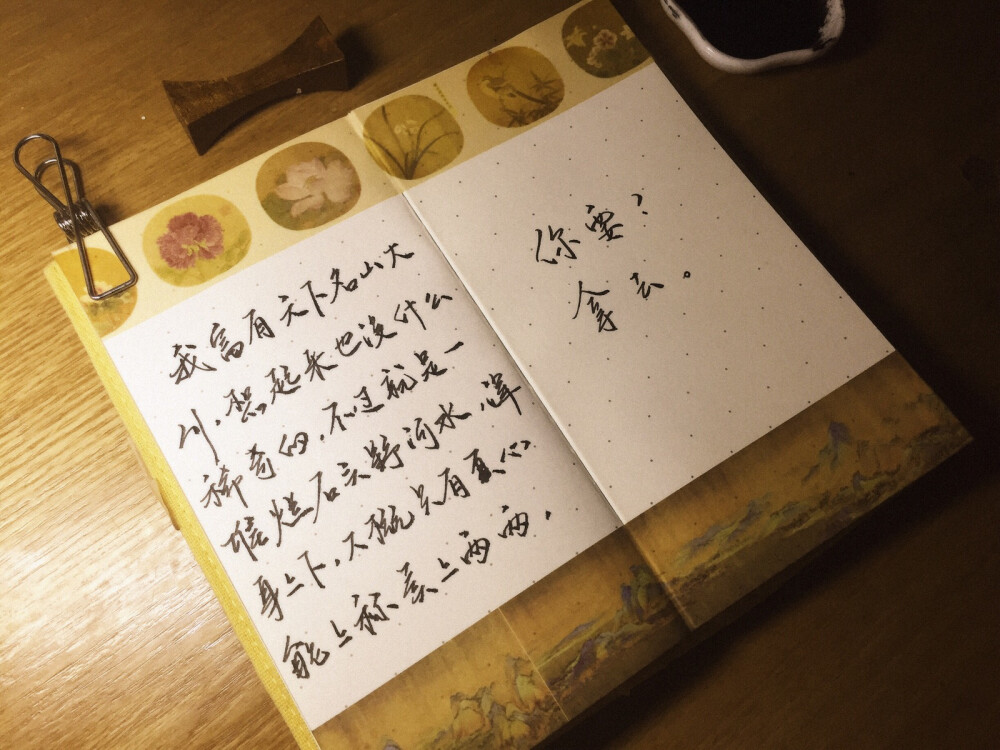 我富有天下名山大
川，想起来也没什么
稀奇的，不过就是一
堆烂石头野河水，浑
身上下，大概只有真心
能上称荣上两两，
你要？
拿去。